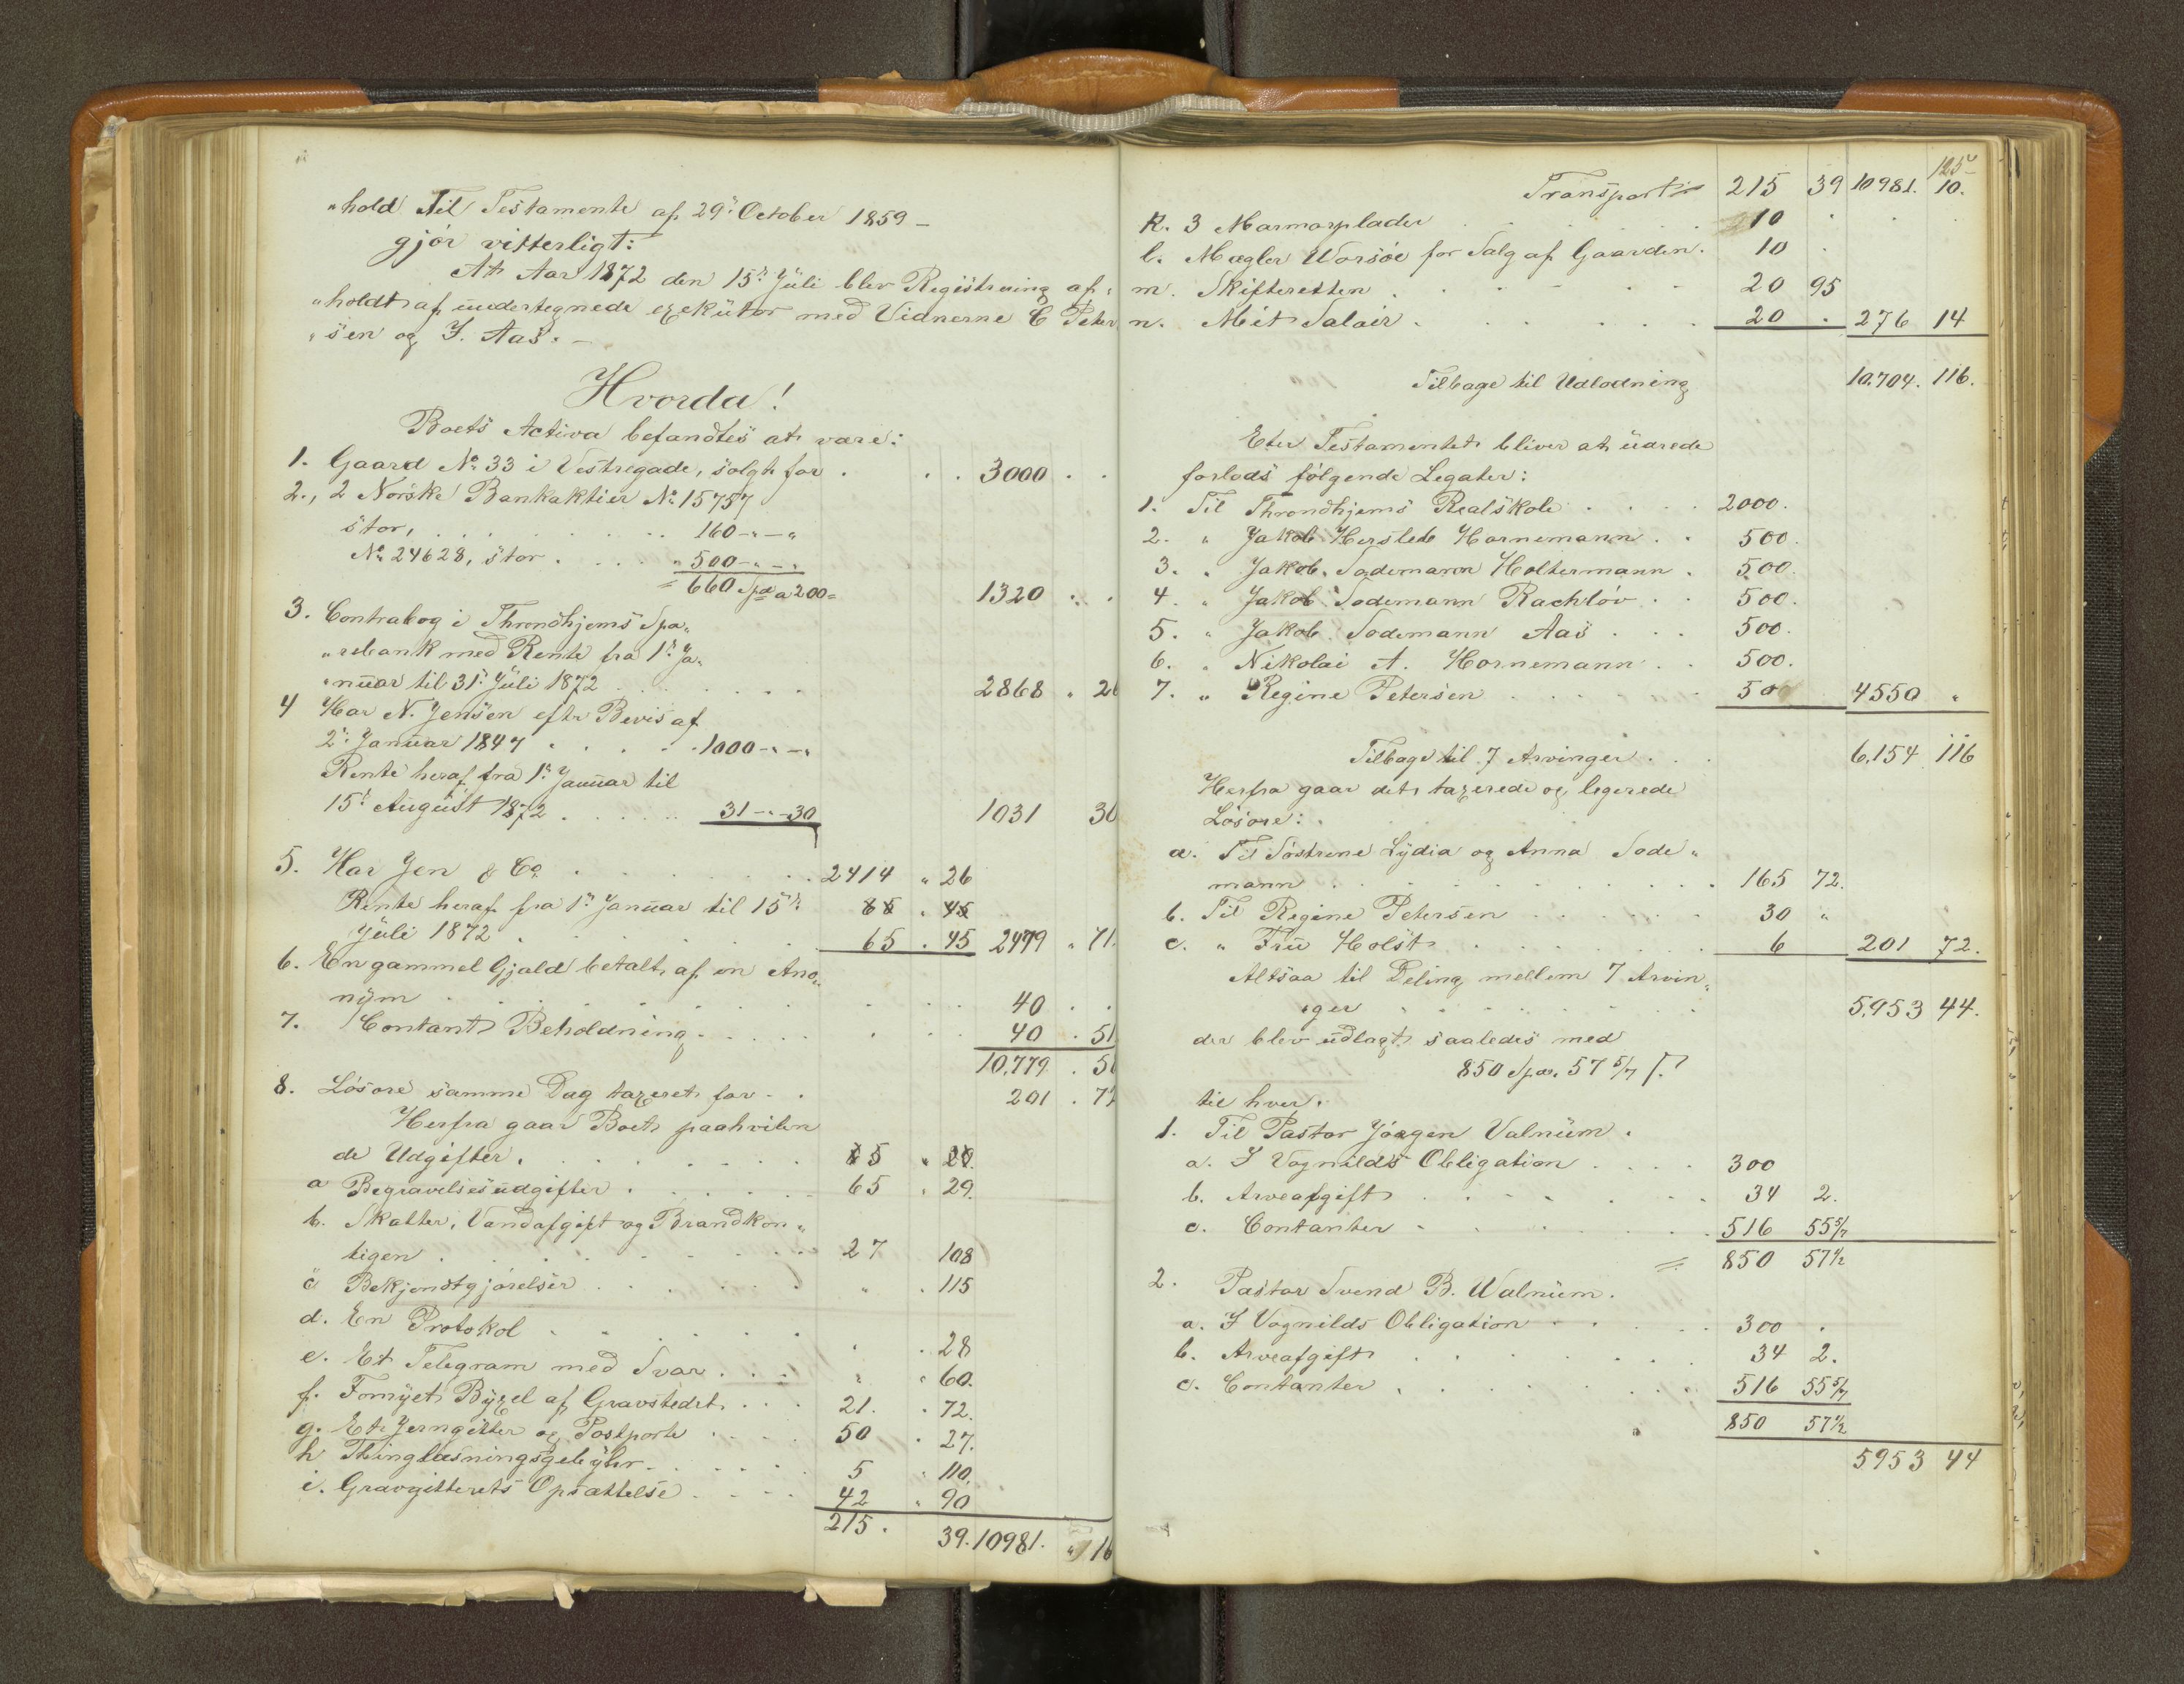 "hold Til Testamente af 29: October 1859 –
gjör vitterligt:
At Aar 1872 den 15: Juli blev Registrering af"
"holdt af undertegnede exekutor med Vidnerne C Peter
"sen og J. Aas. –
Hvorda!
Boets Activa befandtes at være:
1. Gaard No. 33 i Vestregade, solgt for . . . 3000 . .
2., 2 Norske Bankaktier No. 15757
stor, . . . . 160 – " – "
No. 24628, stor . . . " 500 – " – "
= 660 Spd a 200 = 1320 " .
3. Contrabog i Throndhjems Spa"
"rebank med Rente fra 1: Ja"
"nuar til 31: Juli 1872 . . . . 2868 " 26
4 Har N. Jensen efter Bevis af
2: Januar 1847 . . . . 1000 – " – "
Rente heraf fra 1: Januar til
15: August 1872 . . . . 31 – " – 30 1031 30
5. Har Jen & Co. . . . . 2414 " 26
Rente heraf fra 1: Januar til 15: 65 . 45
Juli 1872 . . . . 65 . 45 2479 " 71.
6. En gammel Gjæld betalt af en Ano"
nym . . . . 40 . .
7. Contant Beholdning . . . . 40 . 51
10,779 . 5
8. Lösöre samme Dag taxeret for – . 201 . 72
Herfra gaar Boets paahvilen
de Udgifter. . . . . 65 " 29.
a Begravelsesudgifter . . . . 65 . 29.
b. Skatter, Vandafgift og Brandkon"
tigen . . . . 27 108
c Bekjendtgjörelser . . . . " . 115
d. En Protokol . . . . " . 28
e. Et Telegram med Svar . . . " " 60.
f. Fornyet Byxel af Gravstedet . . . 21. . 72.
g. Et Jerngitter og Postporto . . . 50 . 27.
h Thinglæsningsgebyhr . . . . 5 " 110.
i. Gravgitterets Opsættelse . . . . 42 " 90
215. 39. 10981. " 116
125
Transport 215 39 10981. 10.
k. 3 Marmorplader . . . . 10 . . .
l. Mægler Worsöe for Salg af Gaarden. 10 .
m. Skifteretten . . . . 20 95
n. Mit Salair . . . . 20 . 276 14
Tilbage til Udlodning 10.704. 116.
Efter Testamentet bliver at udrede
forlods fölgende Legater:
1. Til Throndhjems Realskole . . . . 2000.
2. " Jakob Hersleb Hornemann . . 500.
3. . Jakob. Sodemann Holtermann . 500.
4. " Jakob Sodemann Rachlöv . . 500.
5. " Jakob Sodemann Aas . . . 500.
6. . Nikolai A. Hornemann . . 500.
7. " Regine Petersen . . . . 50 4550 "
Tilbage til 7 Arvinger . . . 6,154 116
Herfra gaar det taxerede og legerede
Lösöre: .
a. Til Söstrene Lydia og Anna Sode"
mann . . . . 165 72.
b. Til Regine Petersen . . . . 30 "
c. " Fru Holst . . . . 6 201 72.
Altsaa til Deling mellem 7 Arvin"
"ger . . . . 5,953 44.
der blev udlagt saaledes med
850 Spd. 57 5/7 ſ?
til hver.
1. Til Pastor Jörgen Valnum .
a. I Vognilds Obligation . . . . 300
b. Arveafgift . . . . 34 2.
c. Contanter . . . . 516 55 5/7
= 850 57 1/2
2. Pastor Svend B. Walnum .
a. I Vognilds Obligation . . . . 300 .
b. Arveafgift . . . . 34 2.
c. Contanter . . . . 516 55 5/7
" 850 57 1/2
5953 44